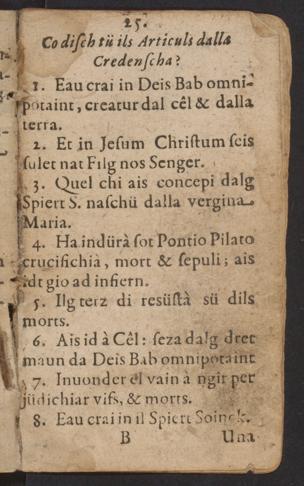 25.
Co diſch tü ils Articuls dalla
Credenſcha?
1. Eau crai in Deis Bab omni-
potaint, creatur dal cêl & dalla
terra.
2. Et in Jeſum Chriſtum ſeis
ſulet nat Filg nos Senger.
3. Quel chi ais concepi dalg
Spiert S. naſchü dalla vergina
Maria.
4. Ha indürà ſot Pontio Pilato
crucifichià, mort & ſepuli; ais
idt gio ad infiern.
5. Ilg terz di reſüſtà sü dils
morts.
6. Ais id à Cêl: ſeza dalg dret
maun da Deis Bab omnipotaint
7. Inuonder el vain a ngir per
jüdichiar vifs, & morts.
8. Eau crai in il Spiert Soinck.
B Una